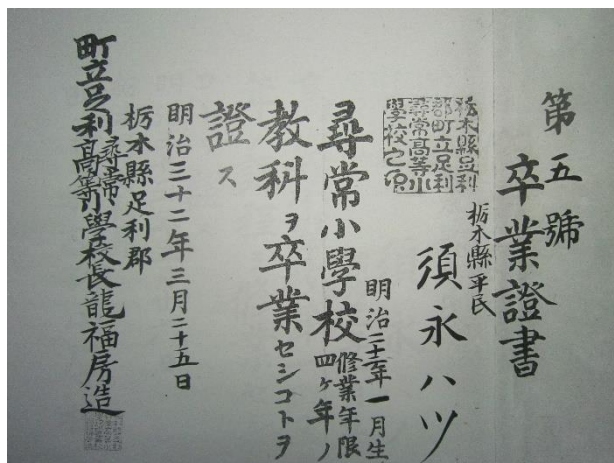 第五號
卒業證書
栃木縣平民
須永ハツ
明治 年一月生
栃木縣足利
郡町立足利
尋常高等小
學校之印
尋常小學校修業年限四ケ年ノ
教科ヲ卒業セシコトヲ
證ス
明治三十二年三月二十五日
栃木縣足利郡
町立足利尋常高等小學校長龍福房造